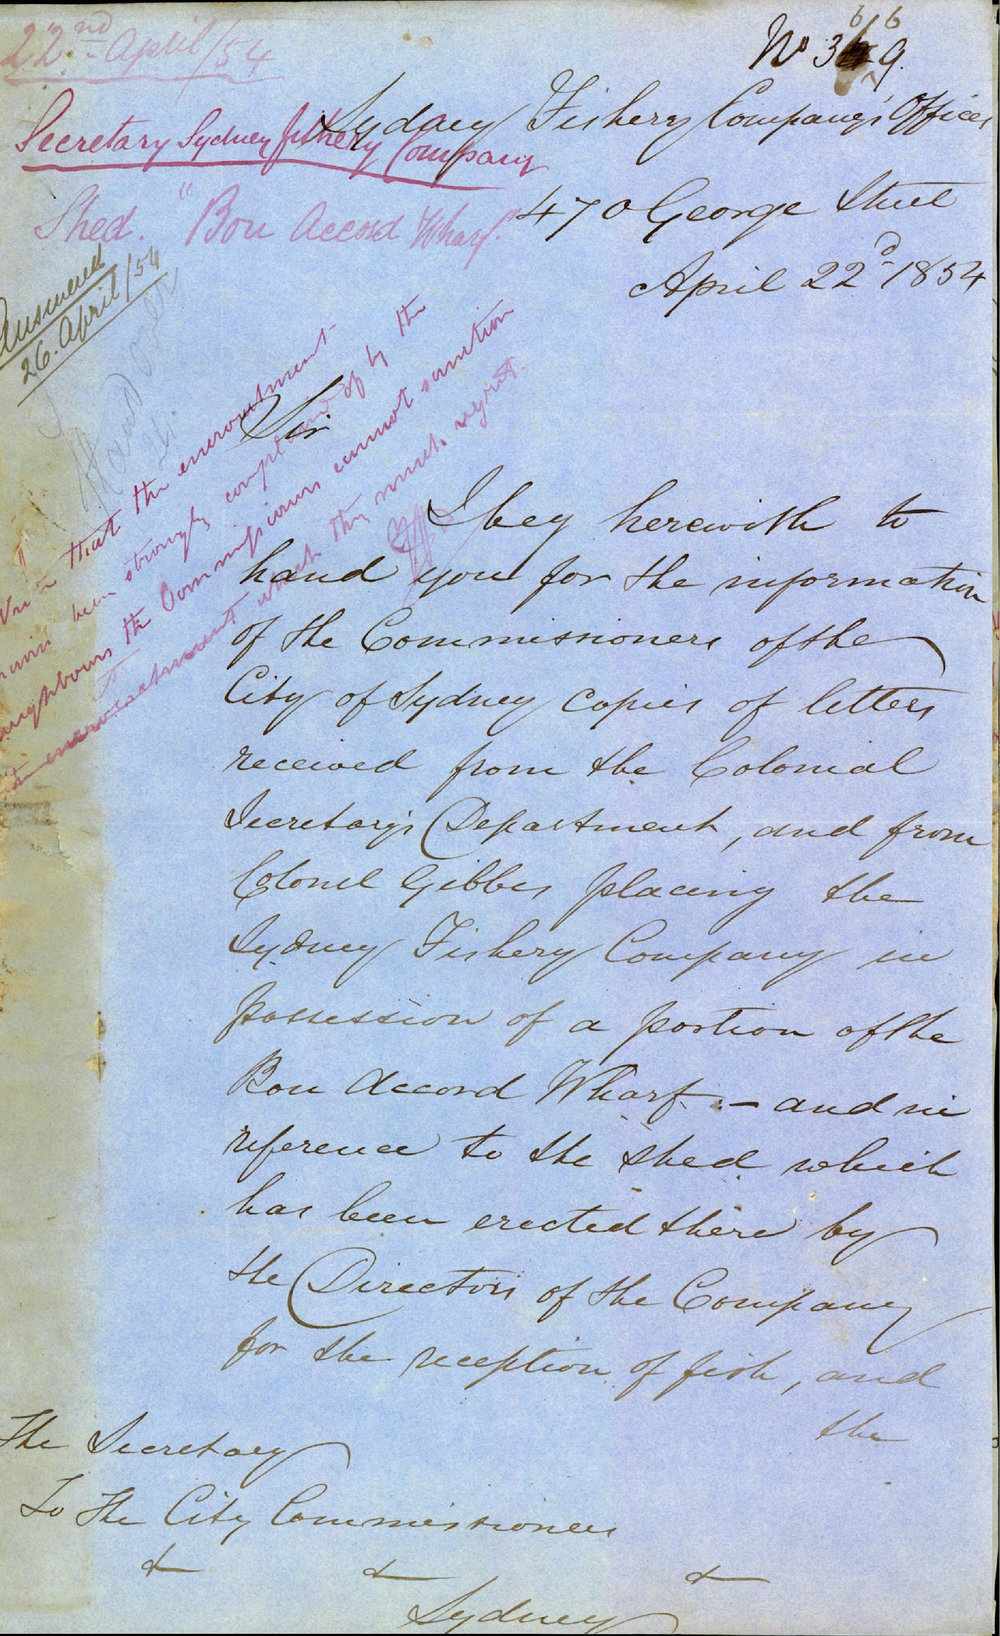 22nd April/54
No 369.
66
Secretary Sydney Fishery Company
Shed. "Bon Accord Wharf."
Answered
26. April/54
Sydney Fishery Company's Offices
470 George Street
April 22d 1854
that the encroachment
having been strongly complained of by the
neighbours the Commissioners cannot sanction
the encroachment which they much regret.
Sir
I beg herewith to
hand you for the information
of the Commissioners of the
City of Sydney copies of letters
received from the Colonial
Secretary's Department, and from
Colonel Gibbes placing the
Sydney Fishery Company in
possession of a portion of the
Bon Accord Wharf :— and in
reference to the shed which
has been erected there by
the Directors of the Company
for the reception of fish, and
the
The Secretary
To The City Commissioners
& & &
Sydney